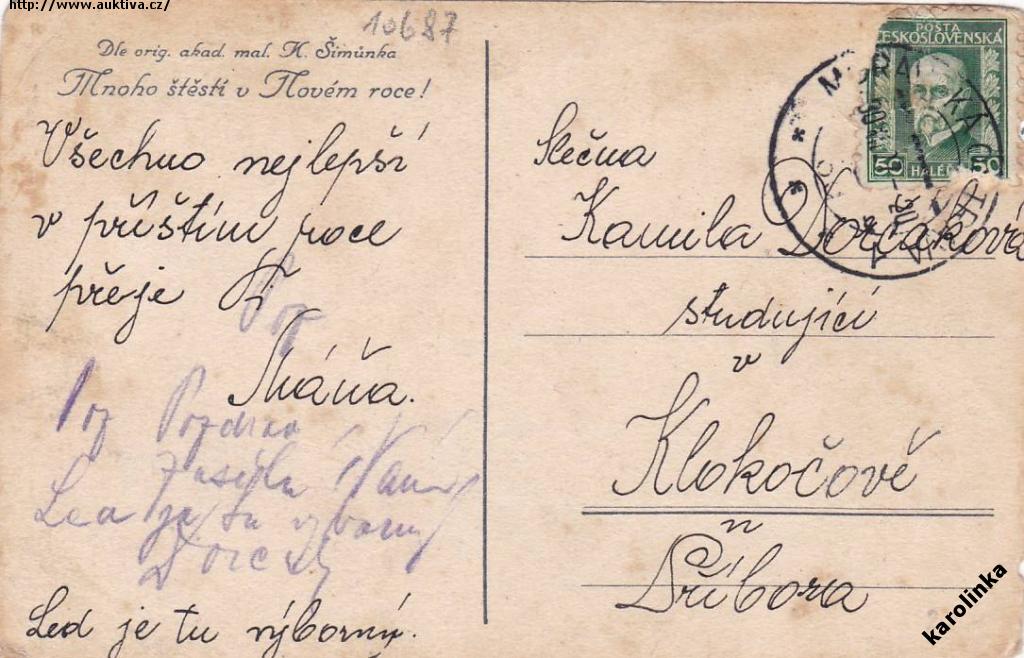 http://www.auktiva.cz/
10687
Dle orig. akad. mal. K. Šimůnka
Mnoho štěstí v Novém roce!
Všechno nejlepší
v příštím roce
přeje Ti
Máňa.
Poz
Poz Pozdrav
zasílá
Led je tu výborný
Led je tu výborný.
POŠTA
ČESKOSLOVENSKÁ
50 HALÉŘŮ 50
MORAVSKÁ OSTRAVA
Slečna
Kamila Dorčáková
studující
v
Klokočově
u
Příbora
karolinka